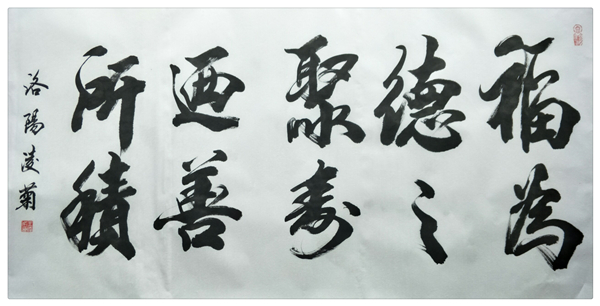 福為
德之
聚壽
迺善
所積
洛陽凌菊